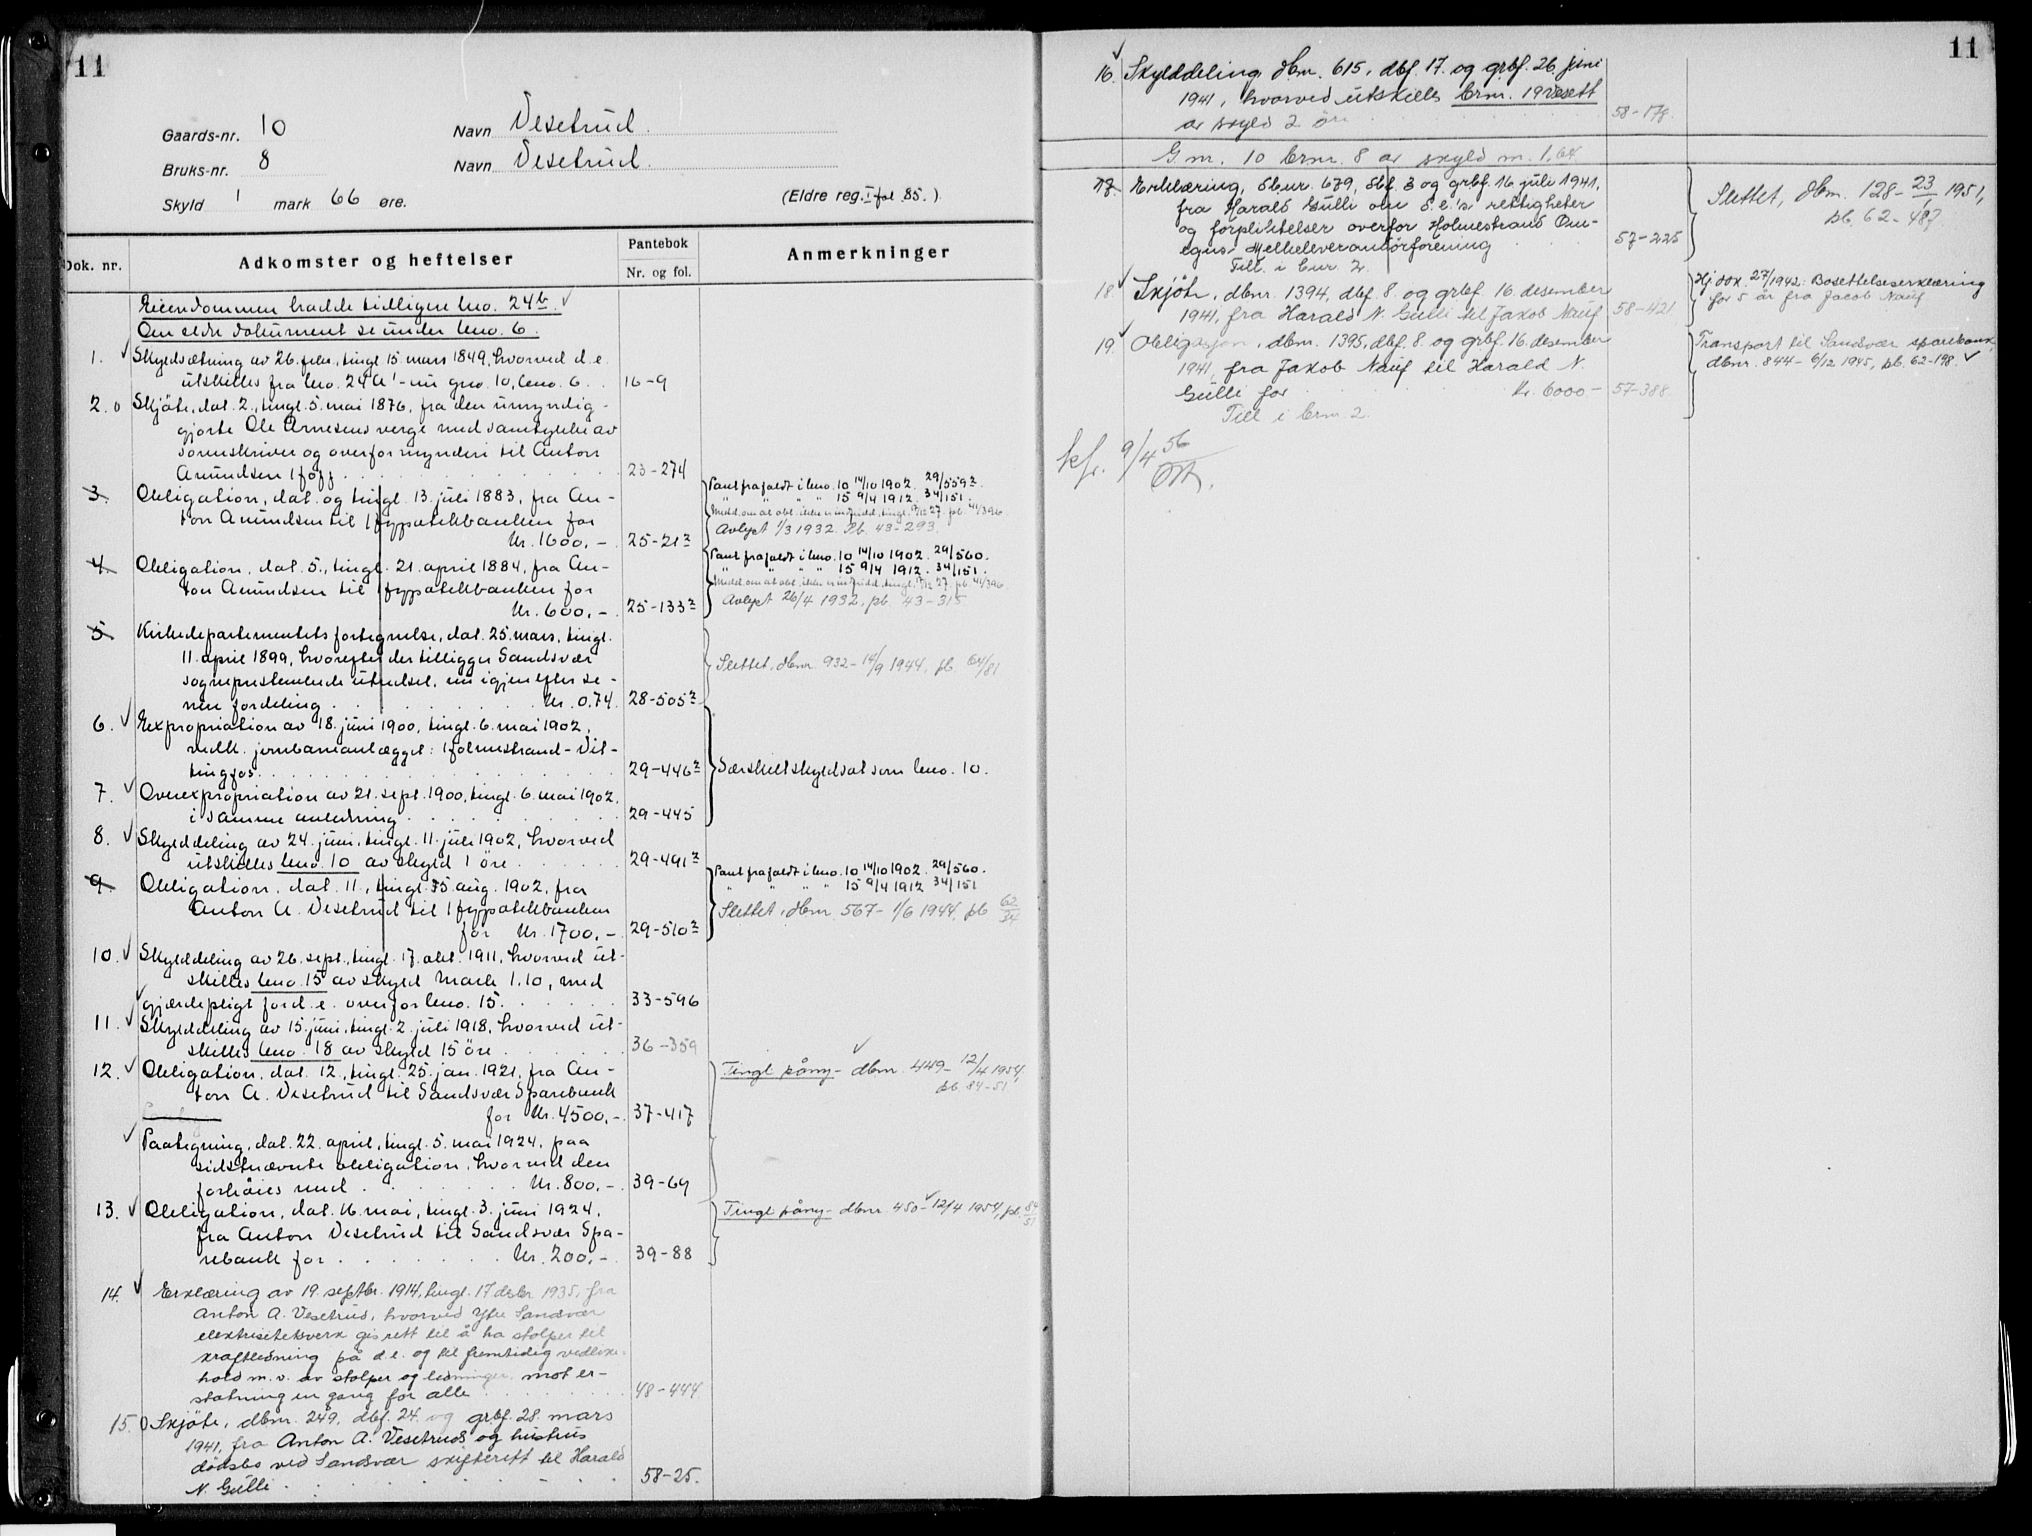 11
Gaards-nr. 10 Navn Vesetrud
Bruks-nr. 8 Navn Vesetrud
Skyld 1 mark 66 øre. (Eldre reg. I fol 85.)
Dok. nr. Adkomster og heftelser Pantebok Nr. og fol. Anmerkninger
Eiendommen hadde tidligere lno. 24b.
Om eldre dokument se under bno. 6.
1. Skyldsætning av 26. febr., tingl. 15. mars 1849, hvorved d.e.
utskilles fra lno. 24a - nu gno. 10, bno. 6. 16-9
2. Skjøte, dat. 2., tingl. 5. mai 1876, fra den umyndig-
gjorte Ole Arnesens verge med samtykke av
sorenskriver og overformynderi til Anton
Amundsen 23-274
3. Obligation, dat. og tingl. 13. juli 1883, fra An-
ton Amundsen til Hypotekbanken for
Kr. 1600,- 25-21
Pant frafaldt i bno. 10 14/10 1902. 29/559
" " " " 15 9/4 1912. 34/151.
Medd. om at obl. ikke er innfridd, tingl. 27. pb. 41/396.
Avlyst 1/3 1932. Pb. 43-293.
4. Obligation, dat. 5., tingl. 21. april 1884, fra An-
ton Amundsen til Hypotekbanken for
Kr. 600,- 25-133
Pant frafaldt i bno. 10 14/10 1902. 29/560.
" " " " 15 9/4 1912. 34/151.
Medd. om at obl. ikke er innfridd, tingl. 27. pb. 41/396
Avlyst 26/4 1932, pb. 43-315
5. Kirkedepartementets fortegnelse, dat. 25. mars, tingl.
11. april 1899, hvorefter der tilligger Sandsvær
sogneprestembede utredsel, nu igjen efter se-
nere fordeling Kr. 0.74 28-505
Slettet, dbnr. 932 - 14/9 1944, pb 64/81
6. Expropriation av 18. juni 1900, tingl. 6. mai 1902,
vedk. jernbaneanlægget: Holmestrand-Vit-
tingfos 29-446
Særskilt skyldsat som bno. 10.
7. Overexpropriation av 21. sept. 1900, tingl. 6. mai 1902,
i samme anledning 29-445
8. Skylddeling av 24. juni, tingl. 11. juli 1902, hvorved
utskilles bno. 10 av skyld 1 øre 29-491
9. Obligation, dat. 11., tingl. 15. aug. 1902, fra
Anton A. Vesetrud til Hypotekbanken
for Kr. 1700,- 29-510
Pant frafaldt i bno. 10 14/10 1902. 29/560.
" " " " 15 9/4 1912 34/151
Slettet, dbnr. 567 - 1/6 1944, pb 62/34
10. Skylddeling av 26. sept., tingl. 17. okt. 1911, hvorved ut-
skilles bno. 15 av skyld mark 1.10, med
gjærdepligt for d.e. overfor bno. 15. 33-596
11. Skylddeling av 15. juni, tingl. 2. juli 1918, hvorved ut-
skilles bno. 18 av skyld 15 øre 36-359
12. Obligation, dat. 12., tingl. 25. jan. 1921, fra An-
ton A. Vesetrud til Sandsvær Sparebank
for Kr. 4500,- 37-417
Tingl påny - dbnr. 449 - 12/4 1954,
pb. 84-51
Paategning, dat. 22. april, tingl. 5. mai 1924, paa
sidstnævnte obligation, hvorved den
forhøies med Kr. 800,- 39-69
13. Obligation, dat. 16. mai, tingl. 3. juni 1924,
fra Anton Vesetrud til Sandsvær Spa-
rebank for Kr. 200,- 39-88
Tingl påny - dbnr. 450 - 12/4 1954, pb. 84/51
14. Erklæring av 19. septbr. 1914, tingl. 17 desbr 1935, fra
Anton A. Vesetrud, hvorved Ytre Sandsvær
elektrisitetsverk gis rett til å ha stolper til
kraftledning på d.e. og til fremtidig vedlike-
hold m.v. av stolper og ledninger mot er-
statning en gang for alle 48-444
15. Skjøte, dbnr. 249, dbf. 24. og grbf. 28. mars
1941, fra Anton A. Vesetruds og hustrus
dødsbo ved Sandsvær skifterett til Harald
N. Gulli 58-25.
11
16. Skylddeling dbnr. 615, dbf. 17. og grbf. 26 juni
1941, hvorved utskilles brnr. 19 Vesett
av skyld 2 øre 58-178
G.nr. 10 brnr. 8 av skyld m. 1.64
17. Erklæring, dbnr. 679, dbf. 3 og grbf. 16 juli 1941,
fra Harald Gulli om d.e.'s rettigheter
og forpliktelser overfor Holmestrand Om-
egns Melkeleverandørforening 57-225
Till. i bnr. 2.
Slettet, dbnr. 128 - 23/1 1951,
pb. 62-487
18 Skjøte, dbnr. 1394, dbf. 8. og grbf. 16. desember
1941, fra Harald N. Gulli til Jakob Nauf 58-421
Hj dok. 27/1942: Bosettelseserklæring
for 5 år fra Jacob Nauf
19. Obligasjon, dbnr. 1395, dbf. 8. og grbf. 16. desember
1941, fra Jakob Nauf til Harald N.
Gulli for kr. 6000.- 57-388
Till i brnr. 2.
Transport til Sandsvær sparebank,
dbnr. 844 - 6/12 1945, pb. 62-198.
kfr. 9/4 56